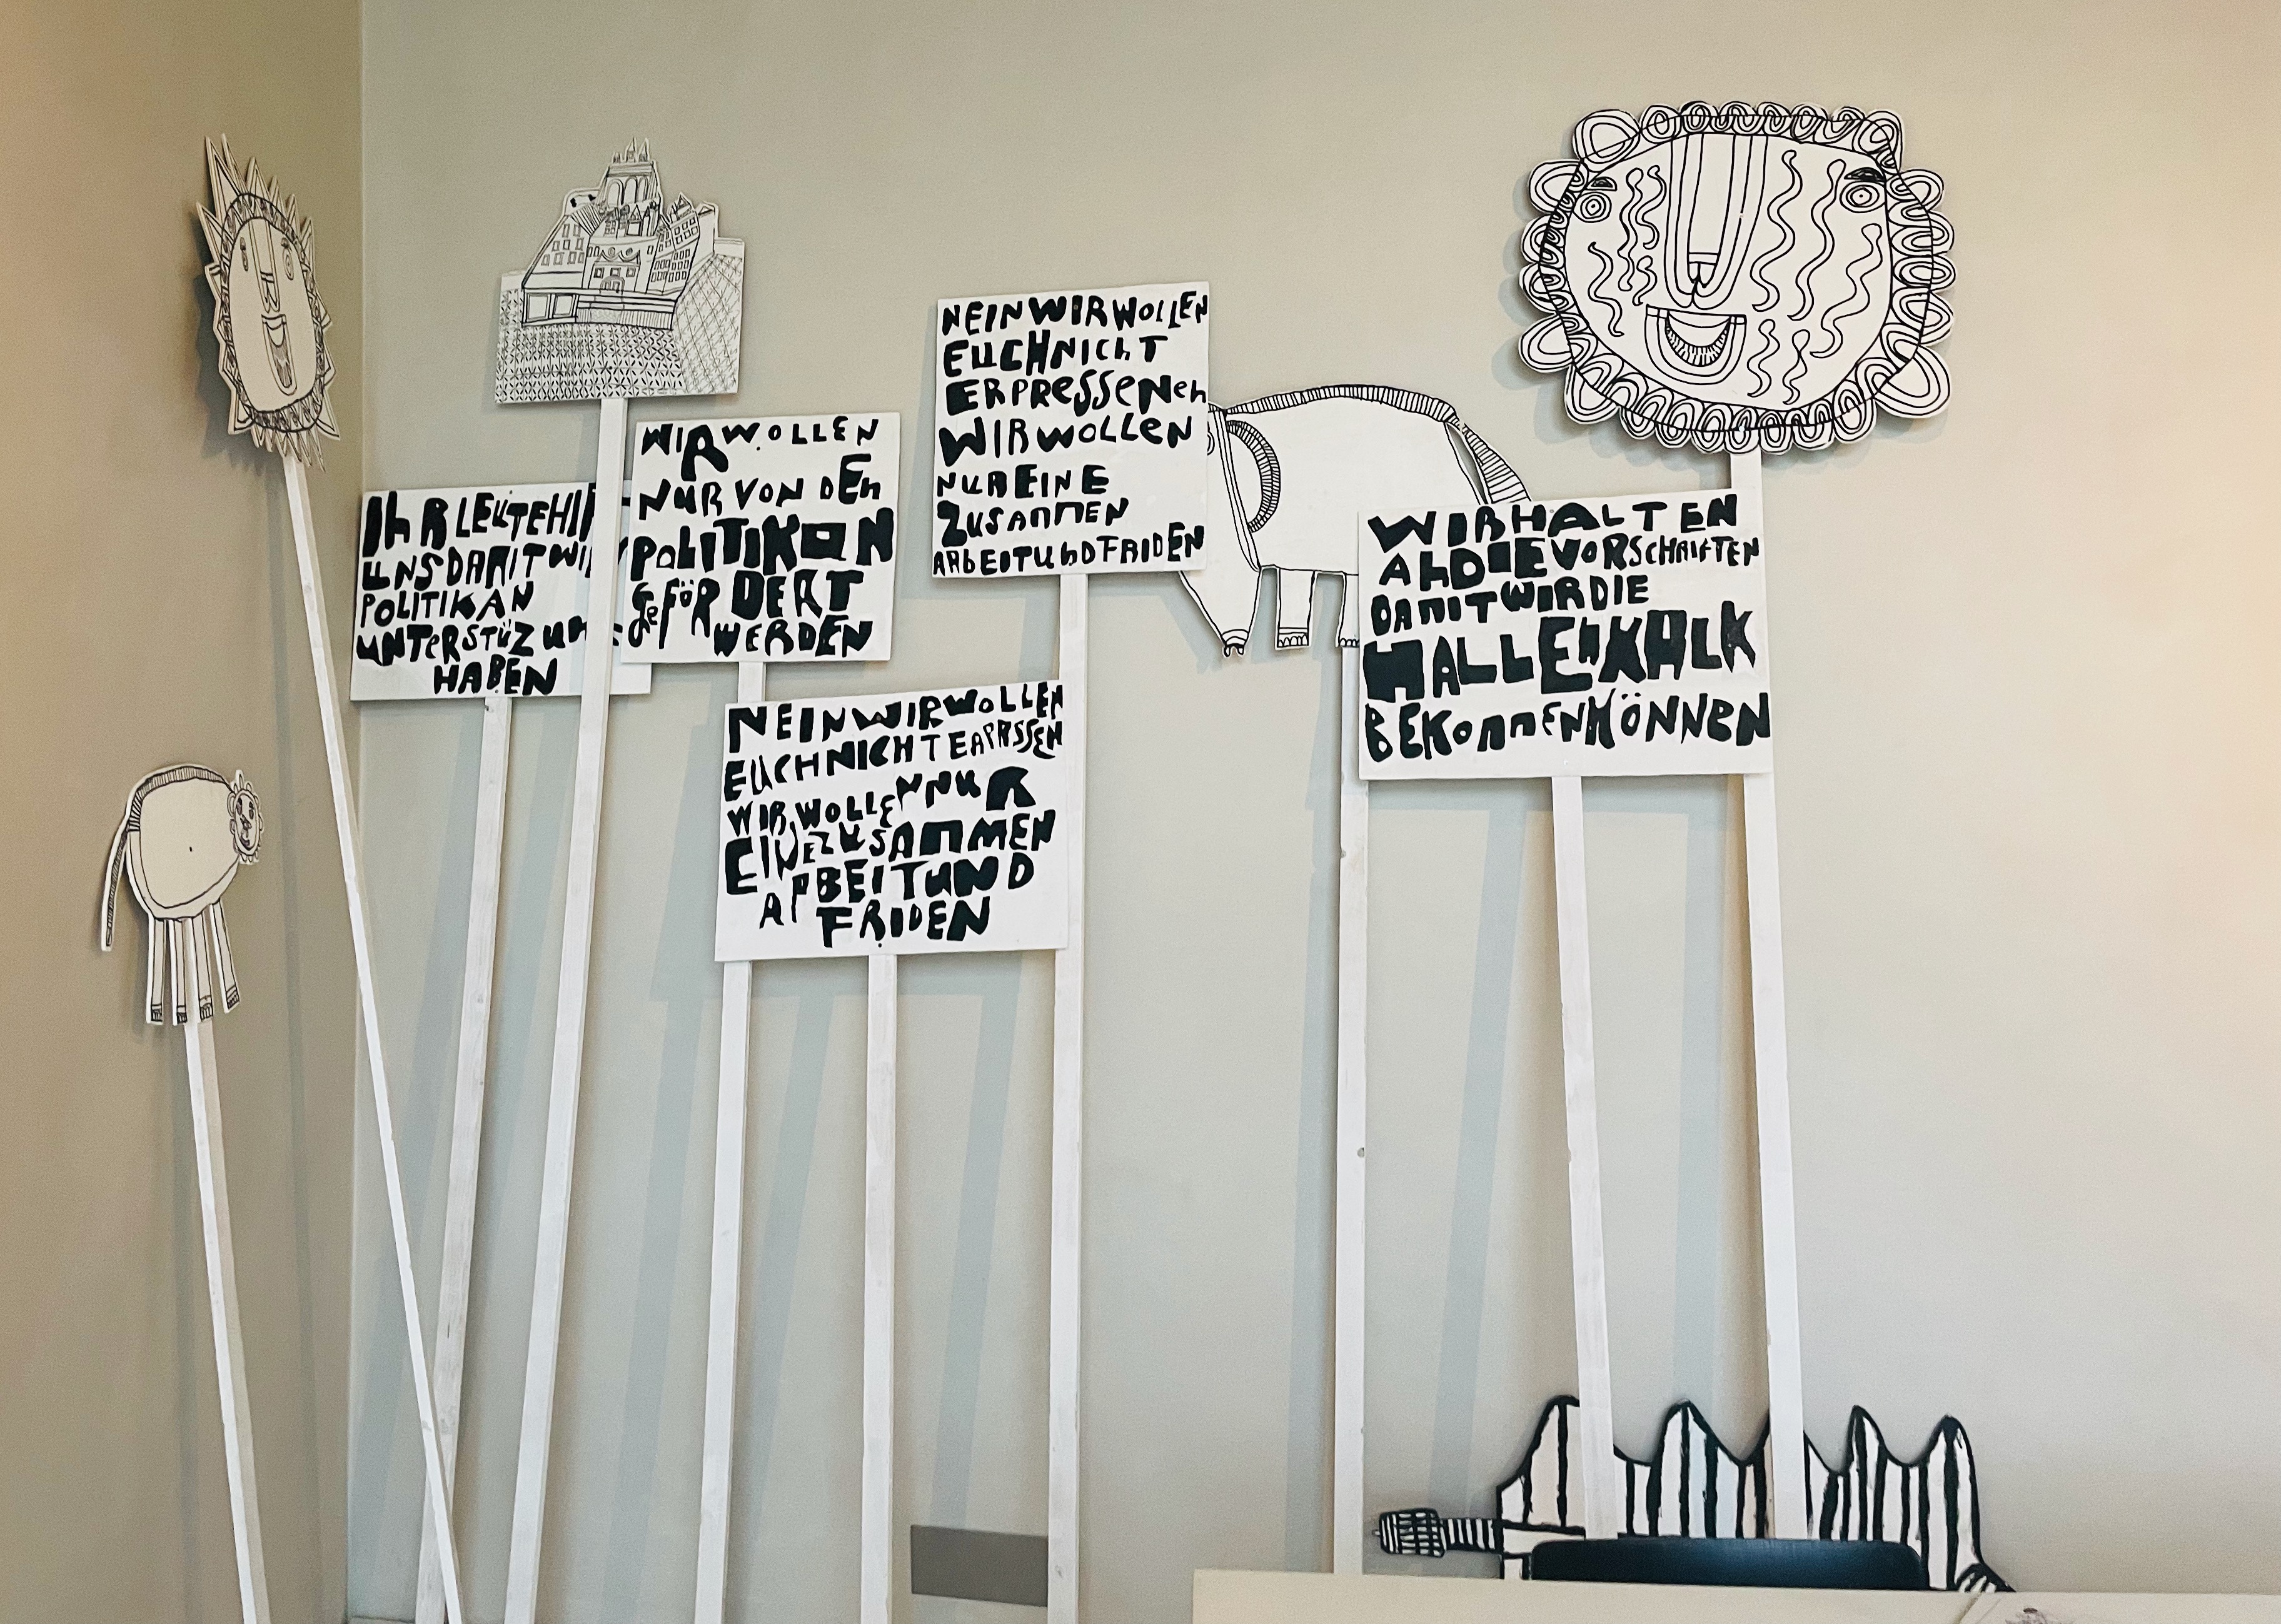 IhR LEUTEHIF
UNSDAMITWIR
POLITIKAN
UNTERSTÜZUN
HABEN
WIRWOLLEN
NURVONDEN
POLITIKAN
GeFÖRDERT
WERDEN
NEINWIRWOLLEN
EUCHNICHT
ERPRESSENeh
WIRWOLLEN
NUREINE
ZUSAMMEN
ARBEITUNDFRIDEN
NEINWIRWOLLEN
EUCHNICHTERPRSSEN
WIRWOLLENNUR
EINEZUSAMMEN
ARBEITUND
FRIDEN
WIRHALTEN
ALDIEVORSCHRIFTEN
DAMITWIRDIE
HALLENKALK
BEKOMMENKÖNNEN